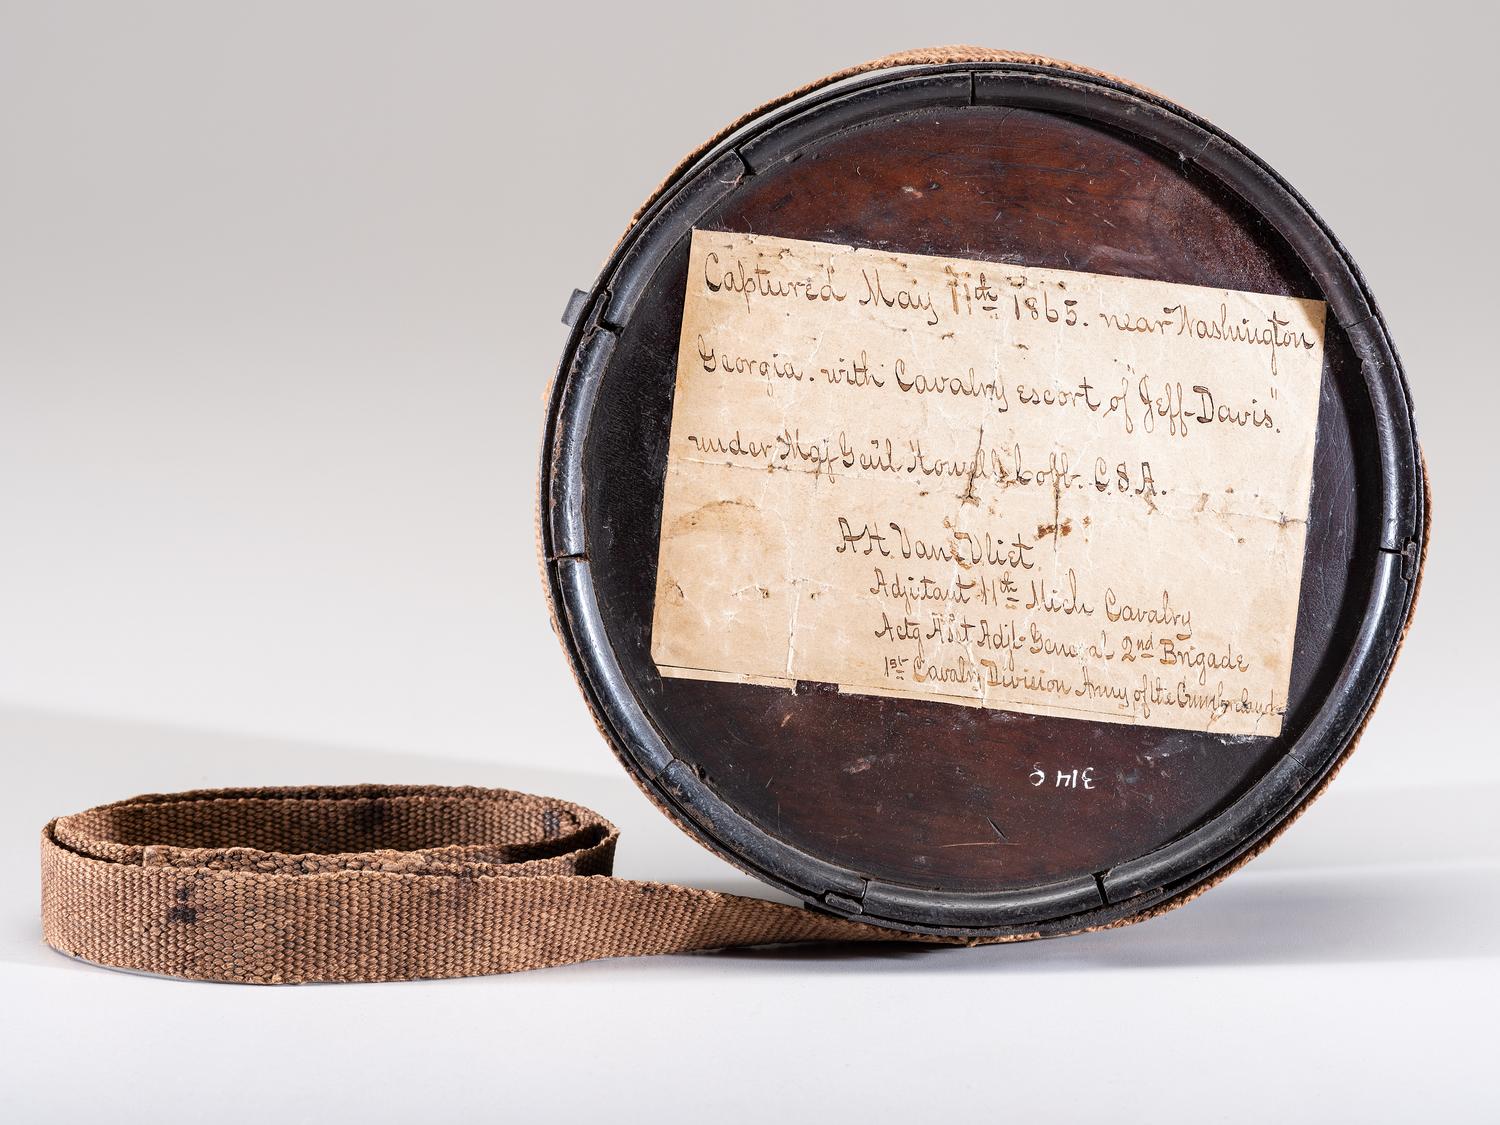 Captured May 11th 1865. near Washington
Georgia. with Cavalry escort of "Jeff-Davis".
under Maj Genl Howell Cobb. C.S.A.
A.H. Van Vliet.
Adjutant 11th Mich Cavalry
Actg Asst Adjt-General 2nd Brigade
1st Cavalry Division Army of the Cumberland
314